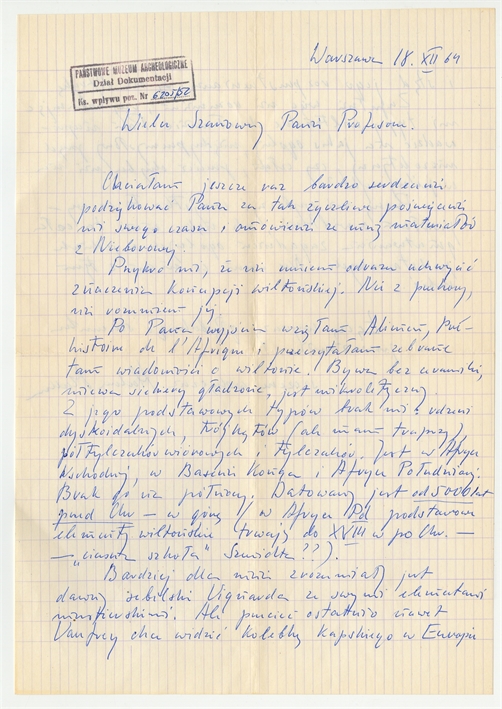 Warszawa 18. XII 64
PAŃSTWOWE MUZEUM ARCHEOLOGICZNE
Dział Dokumentacji
Ks. wpływu poz. Nr
Wielce Szanowny Panie Profesorze.
Chciałam jeszcze raz bardzo serdecznie
podziękować Panu za tak życzliwe poświęcenie
mi swego czasu i omówienie ze mną materiałów
z Nieborowej.
Przykro mi, że nie umiem odrazu uchwycić
znaczenia koncepcji wiltońskiej. Nie z przekory,
nie rozumiem jej.
Po Pana wyjściu wzięłam Alimen, Pré-
histoire de l'Afrique i przeczytałam zebrane
tam wiadomości o wiltonie. Bywa bez ceramiki,
miewa siekiery gładzone, jest mikrolityczny.
Z jego podstawowych typów brak mi: rdzeni
dyskoidalnych, trójkątów (ale mam trapezy)
półtylczaków wiórowych i tylczaków. Jest w Afryce
Wschodniej, w Basenie Konga i Afryce Południowej.
Brak go na północy. Datowany jest od 5000 lat
przed Chr. – w górę / w Afryce Pd podstawowe
elementy wiltońskie trwają do XVIII w po Chr. –
– „ciasna szkoła" ??).
Bardziej dla mnie zrozumiały jest
dawny sebilski Vignarda ze swymi elementami
. Ale przecież ostatnio nawet
Vaufrey chce widzieć kolebkę kapskiego w Europie